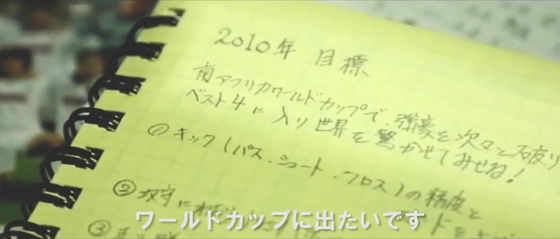 2010年 目標
南アフリカワールドカップで、強豪を次々と破り
ベスト4に入り世界を驚かせてみせる!
①キック(パス.シュート.クロス)の精度と
②攻守に
③
ワールドカップに出たいです